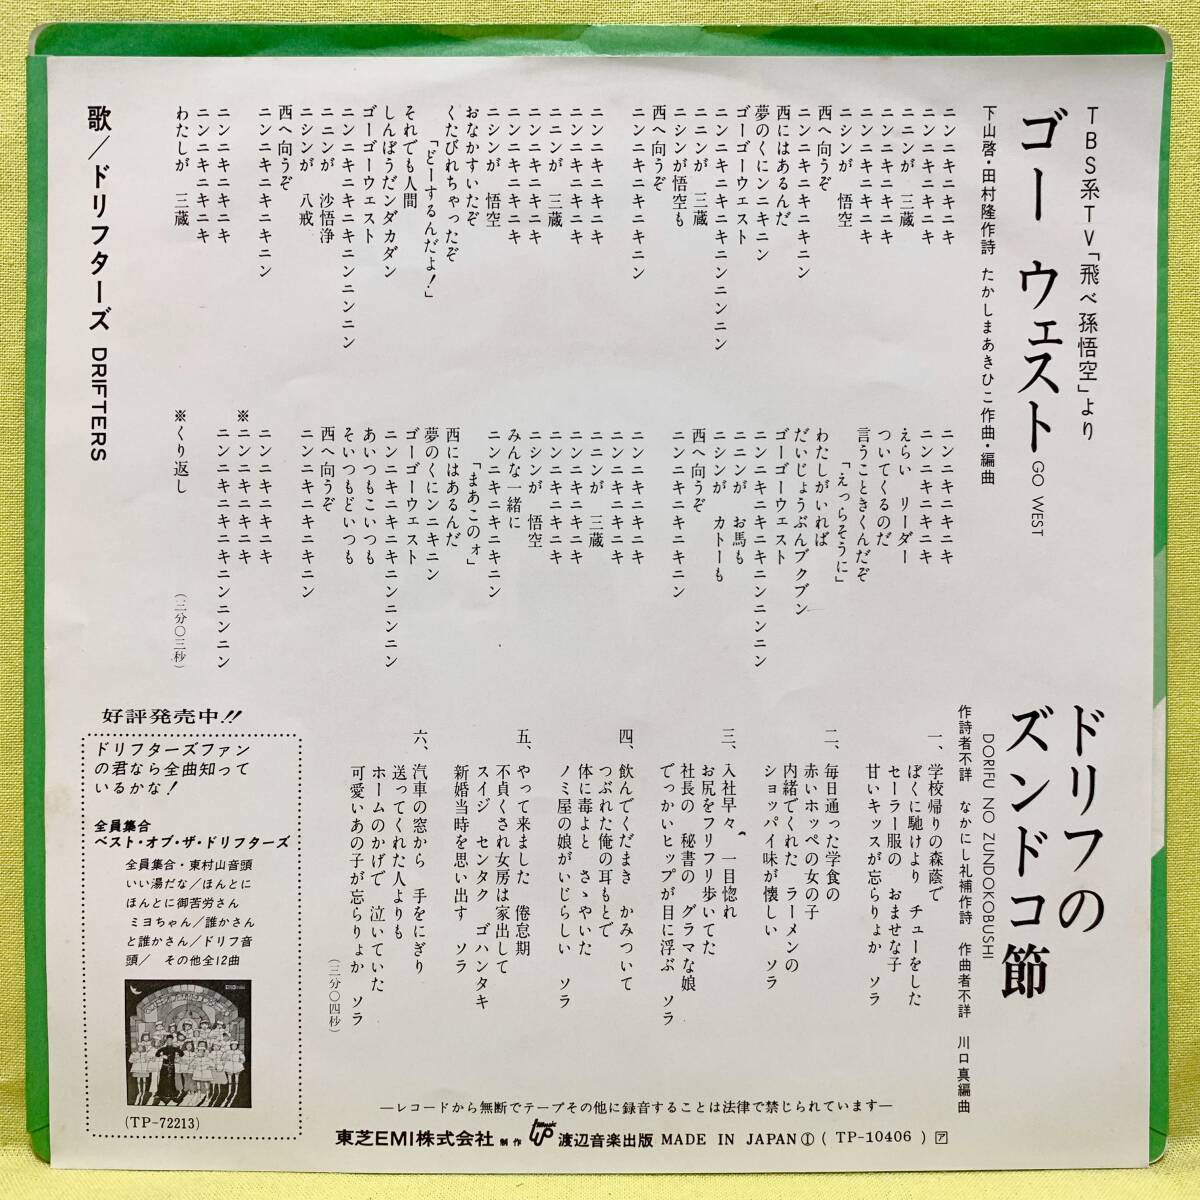 TBS系TV「飛べ孫悟空」より
ゴー ウェスト GO WEST
下山啓・田村隆作詩 たかしまあきひこ作曲・編曲
ニンニキニキニキ
ニンニキニキニキ
ニニンが 三蔵
ニンニキニキニキ
ニンニキニキニキ
ニシンが 悟空
西へ向うぞ
ニンニキニキニキニン
西にはあるんだ
夢のくにンニキニン
ゴーゴーウェスト
ニンニキニキニキニンニンニン
ニニンが 三蔵も
ニシンが悟空も
西へ向うぞ
ニンニキニキニキニン
ニンニキニキニキ
ニンニキニキニキ
ニニンが 三蔵
ニンニキニキニキ
ニンニキニキニキ
ニシンが 悟空
おなかすいたぞ
くたびれちゃったぞ
「どーするんだよ!」
それでも人間
しんぼうだンダカダン
ゴーゴーウェスト
ニンニキニキニキニンニンニン
ニニンが 沙悟浄
ニシンが 八戒
西へ向うぞ
ニンニキニキニキニン
ニンニキニキニキ
ニンニキニキニキ
わたしが 三蔵
ニンニキニキニキ
ニンニキニキニキ
えらい リーダー
ついてくるのだ
言うことときくんだぞ
「えっらそうに」
わたしがいれば
だいじょうぶんブクブン
ゴーゴーウェスト
ニンニキニキニキニンニンニン
ニニンが お馬も
ニシンが カトーも
西へ向うぞ
ニンニキニキニキニン
ニンニキニキニキ
ニンニキニキニキ
ニニンが 三蔵
ニンニキニキニキ
ニンニキニキニキ
ニシンが 悟空
みんな一緒に
ニンニキニキニキニン
「まあこのォ」
西にはあるんだ
夢のくにンニキニン
ゴーゴーウェスト
ニンニキニキニキニンニンニン
あいつもこいつも
そいつもどいつも
西へ向うぞ
ニンニキニキニキニン
ニンニキニキニキ
※ニンニキニキニキ
ニンニキニキニキニンニンニン
※くり返し
(三分〇三秒)
歌/ドリフターズ DRIFTERS
ドリフの
ズンドコ節
DORIFU NO ZUNDOKOBUSHI
作詩者不詳 なかにし礼補作詩 作曲者不詳 川口真編曲
一、学校帰りの森蔭で
ぼくに馳けより チューをした
セーラー服の おませな子
甘いキッスが忘らりょか ソラ
二、毎日通った学食の
赤いホッペの女の子
内緒でくれた ラーメンの
ショッパイ味が懐しい ソラ
三、入社早々 一目惚れ
お尻をフリフリ歩いてた
社長の 秘書の グラマな娘
でっかいヒップが目に浮ぶ ソラ
四、飲んでくだまき かみついて
つぶれた俺の耳もとで
体に毒よと さゝやいた
ノミ屋の娘がいじらしい ソラ
五、やって来ました 倦怠期
不貞くされ女房は家出して
スイジ センタク ゴハンタキ
新婚当時を思い出す ソラ
六、汽車の窓から 手をにぎり
送ってくれた人よりも
ホームのかげで 泣いていた
可愛いあの子が忘らりょか ソラ
(三分〇四秒)
好評発売中!!
ドリフターズファン
の君なら全曲知って
いるかな!
全員集合
ベスト・オブ・ザ・ドリフターズ
全員集合・東村山音頭
いい湯だな/ほんとに
ほんとに御苦労さん
ミヨちゃん/誰かさん
と誰かさん/ドリフ音
頭/ その他全12曲
(TP-72213)
—レコードから無断でテープその他に録音することは法律で禁じられています—
東芝EMI株式会社 制作 渡辺音楽出版 MADE IN JAPAN Ⓘ ( TP-10406 ) ア